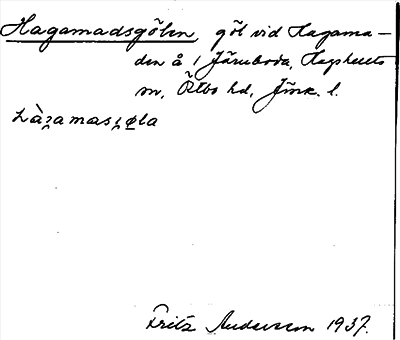 Hagamadsgölen, göl vid Hagama-
den å i Järnboda, Hagshults
sn, Östbo hd, Jönk. l.
Fritz Andersson 1937.